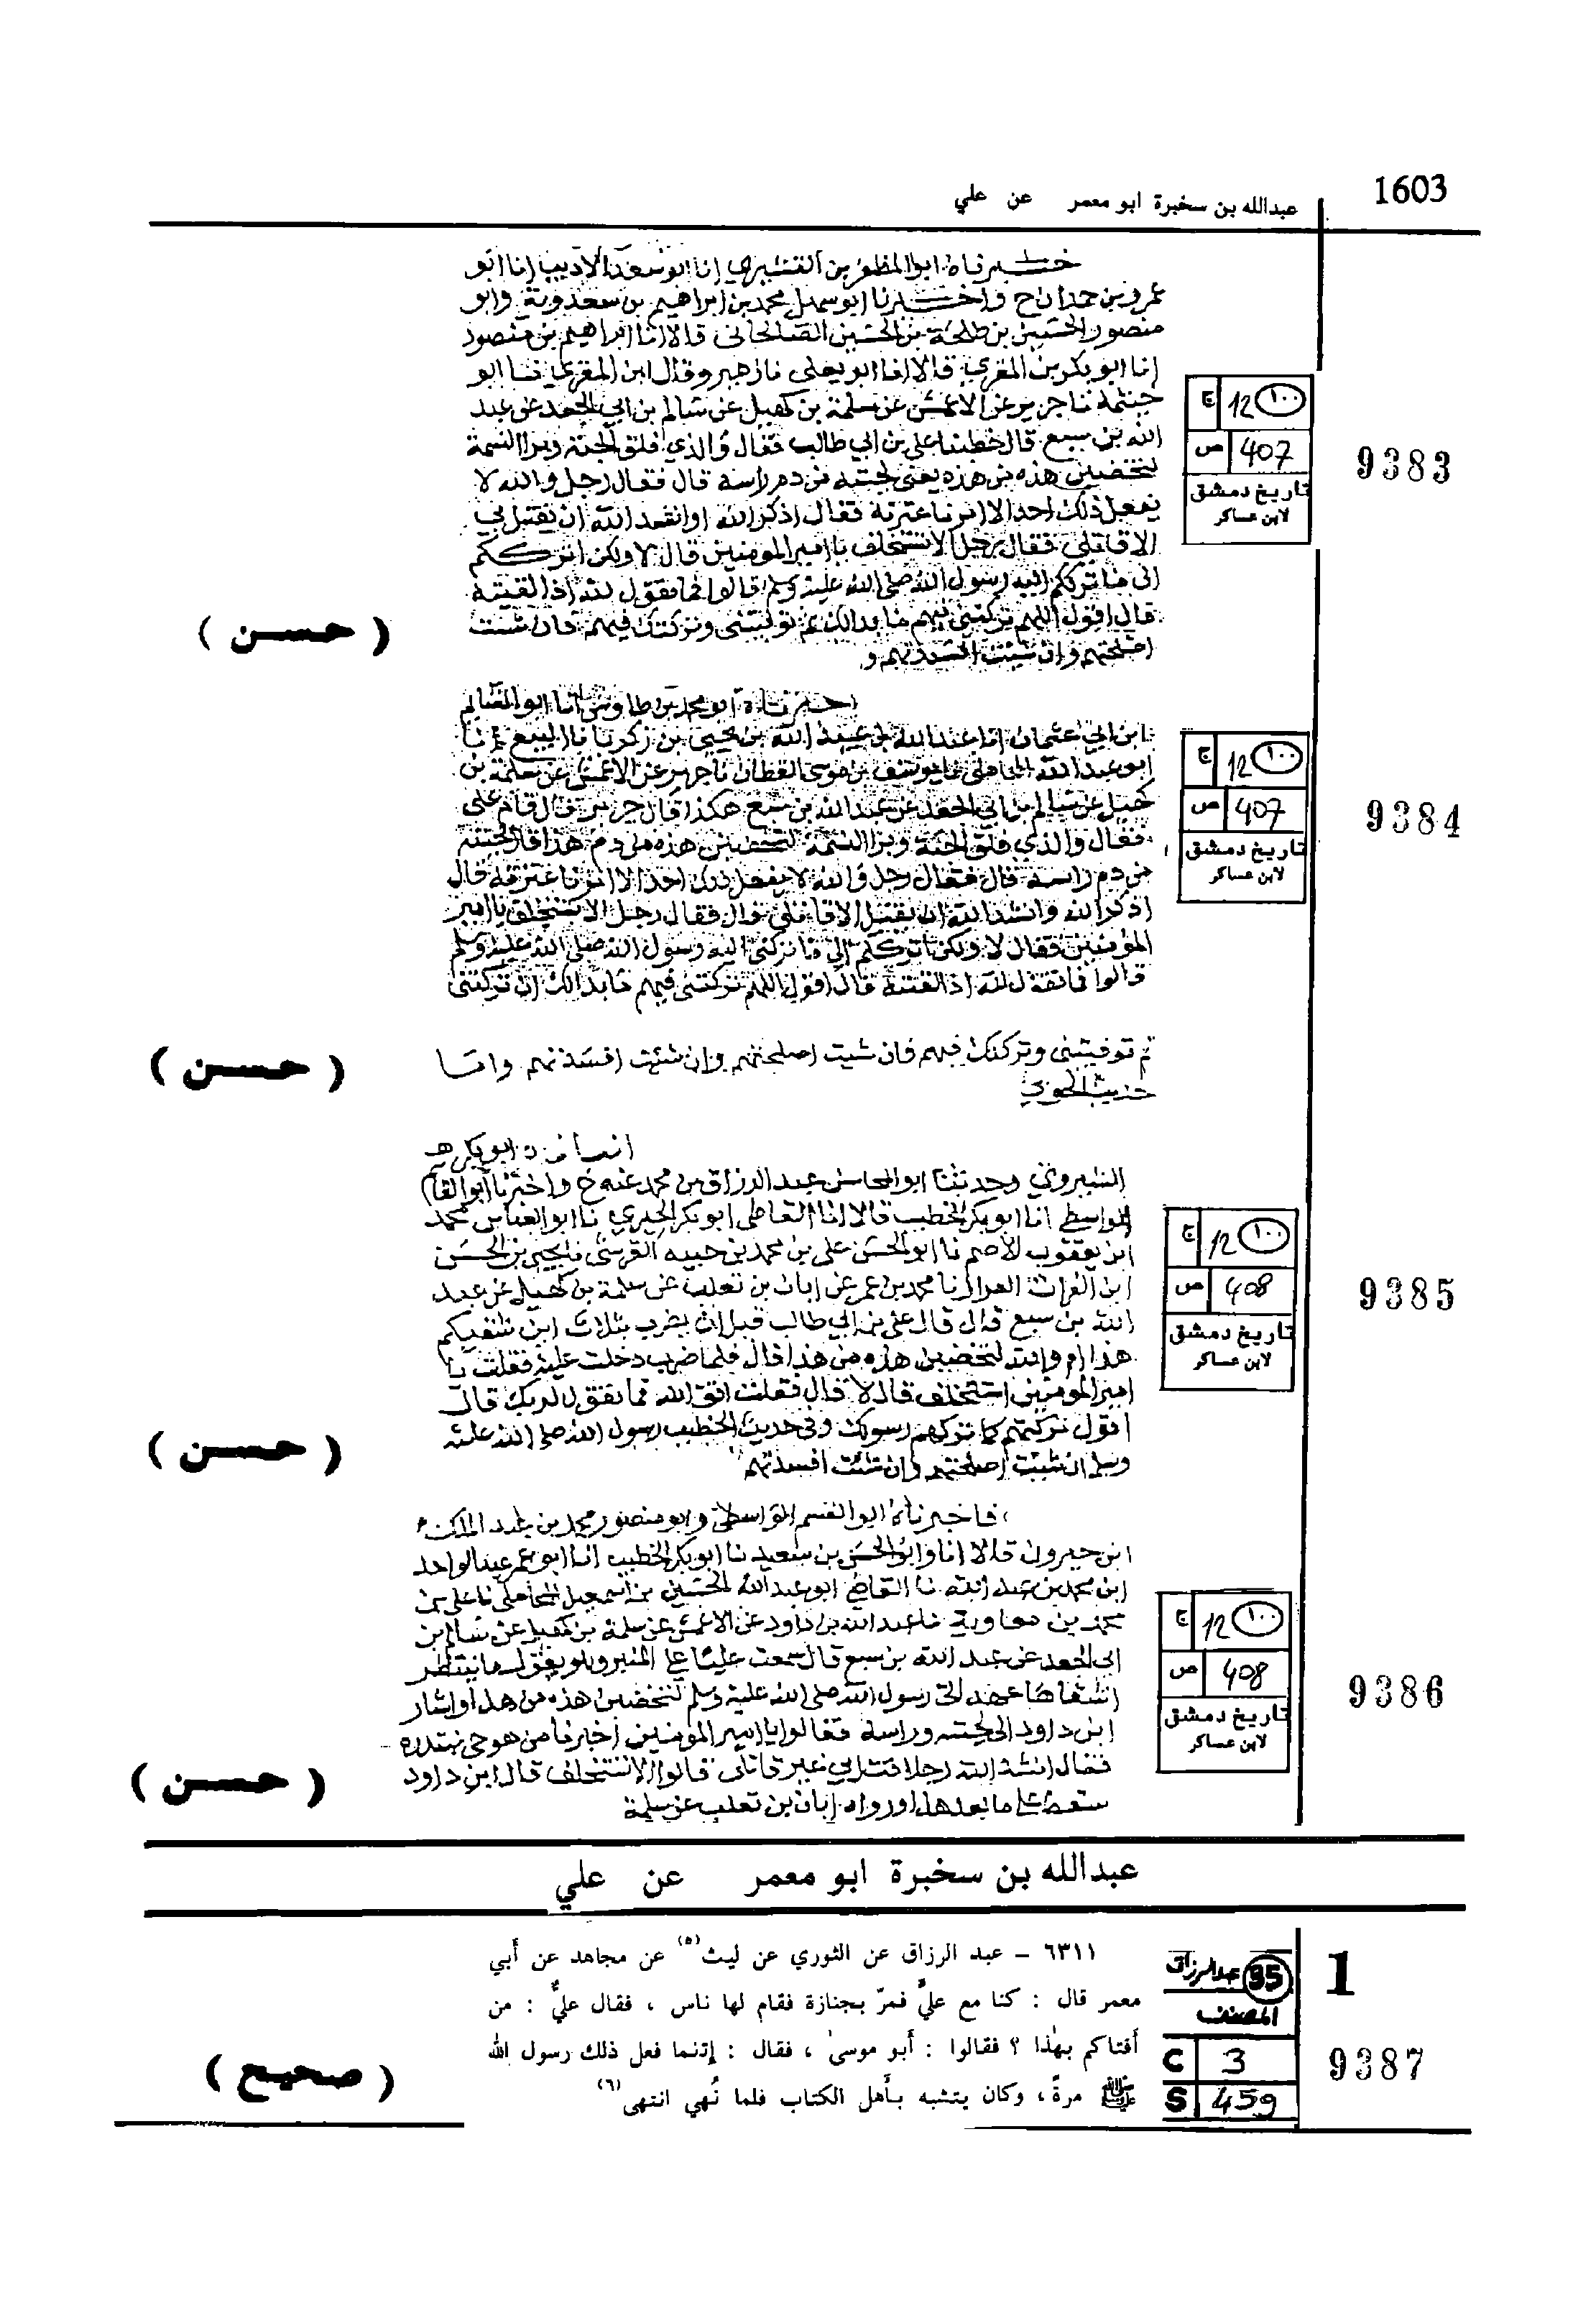 1603
عبدالله بن سخبرة ابو معمر عن علي
خبرناه ابو المظفر بن القشيري انا ابو سعد الاديب انا ابو
عمرو بن حمدان ح واخبرنا ابو سهل محمد بن ابراهيم بن سعدوية وابو
منصور الحسين بن طلحة بن الحسين الصالحاني قالا انا ابراهيم بن منصور
انا ابو بكر بن المقري قالا انا ابو يعلى نا زهير وقال ابن المقري نا ابو
خيثمة نا جرير عن الاعمش عن سلمة بن كهيل عن سالم بن ابي الجعد عن عبد
الله بن سبع قال خطبنا علي بن ابي طالب فقال والذي فلق الحبة وبرا النسمة
لتخضبن هذه من هذه يعني لحيته من دم راسه قال فقال رجل والله لا
يفعل ذلك احد الا ابرنا عترته فقال اذكر الله او انشد الله ان يقتل بي
الا قاتلي فقال رجل الا تستخلف يا امير المومنين قال لا ولكن اترككم
الى ما ترككم اليه رسول الله صلى الله عليه وسلم قالوا فما تقول لله اذا لقيته
قال اقول اللهم تركتني فيهم ما بدا لك ثم توفيتني وتركتك فيهم فان شئت
اصلحتهم وان شئت افسدتهم و
ج 12 ١٠٠
ص 407
تاريخ دمشق
لابن عساكر
9383
( حسن )
ابو محمد بن طاوس انا ابو الغنايم
ابن ابي عثمان انا عبد الله بن عبيد الله بن يحيى بن زكريا نا البيع نا
ابو عبد الله المحاملي نا يوسف بن موسى القطان نا جرير عن الاعمش عن سلمة بن
كهيل عن سالم بن ابي الجعد عن عبد الله بن سبع هكذا قال جرير قال قام علي
فقال والذي فلق الحبة وبرا النسمة لتخضبن هذه من دم هذا قال لحيته
من دم راسه قال فقال رجل والله لا يفعل ذلك احد الا ابرنا عترته قال
اذكر الله وانشد الله ان يقتل الا قاتلي قال فقال رجل الا تستخلف يا امير
المؤمنين فقال لا ولكن اترككم الى ما تركني اليه رسول الله صلى الله عليه وسلم
قالوا فما تقول لله اذا لقيته قال اقول اللهم تركتني فيهم ما بدا لك ان تركتني
ثم توفيتني وتركتك فيهم فان شيت اصلحتهم وان شئت افسدتهم واما
حديث
ج 12 ١٠٠
ص 407
تاريخ دمشق
لابن عساكر
9384
( حسن )
ابو بكر
الشيروي وحدثنا ابو المحاسن عبد الرزاق بن محمد عنه ح واخبرنا ابو القاسم
الواسطي انا ابو بكر الخطيب قالا انا القاضي ابو بكر الحيري نا ابو العباس محمد
ابن يعقوب الاصم نا ابو الحسن علي بن محمد بن حبيبه القرشي نا يحيى بن الحسن
ابن الفرات القزاز نا محمد بن عمر عن ابان بن تغلب عن سلمة بن كهيل عن عبد
الله بن سبع قال قال علي بن ابي طالب قبل ان يضرب بثلاث اين شقيكم
هذا ام والله لتخضبن هذه من هذا قال فلما ضرب دخلت عليه فقلت يا
امير المومنين استخلف قال لا قال فقلت اتق الله فما تقول لربك قال
اقول تركتهم كما تركهم رسولك وفي حديث الخطيب رسول الله صلى الله عليه
وسلم ان شئت اصلحتهم وان شئت افسدتهم
ج 12 ١٠٠
ص 408
تاريخ دمشق
لابن عساكر
9385
( حسن )
فاخبرناه ابو القسم الواسطي وابو منصور محمد بن عبد الملك
ابن خيرون قالا انا وابو الحسن بن سعيد نا ابو بكر الخطيب انا ابو عمر عبد الواحد
ابن محمد بن عبد الله نا القاضي ابو عبد الله الحسين بن اسمعيل المحاملي نا علي بن
محمد بن معاوية نا عبد الله بن داود عن الاعمش عن سلمة بن كهيل عن سالم بن
ابي الجعد عن عبد الله بن سبع قال سمعت عليا على المنبر وهو يقول ما ينتظر
اشقاها عهد الي رسول الله صلى الله عليه وسلم لتخضبن هذه من هذا واشار
ابن داود الى لحيته وراسه فقالوا يا امير المومنين اخبرنا من هو حتى نبتدره
فقال انشد الله رجلا قتل بي غير قاتلي قالوا الا تستخلف قال ابن داود
سقط علي ما بعد هذا ورواه ابان بن تغلب عن سلمة
ج 12 ١٠٠
ص 408
تاريخ دمشق
لابن عساكر
9386
( حسن )
عبدالله بن سخبرة ابو معمر عن علي
٦٣١١ – عبد الرزاق عن الثوري عن ليث(٥) عن مجاهد عن أبي
معمر قال : كنا مع عليّ فمرّ بجنازة فقام لها ناس ، فقال عليٌّ : من
أفتاكم بهٰذا ؟ فقالوا : أبو موسىٰ ، فقال : إتنما فعل ذلك رسول الله
ﷺ مرةً ، وكان يتشبه بأهل الكتاب فلما نُهي انتهى(٦)
1
عبد الرزاق 95
المصنف
C 3
S 459
9387
( صحيح )